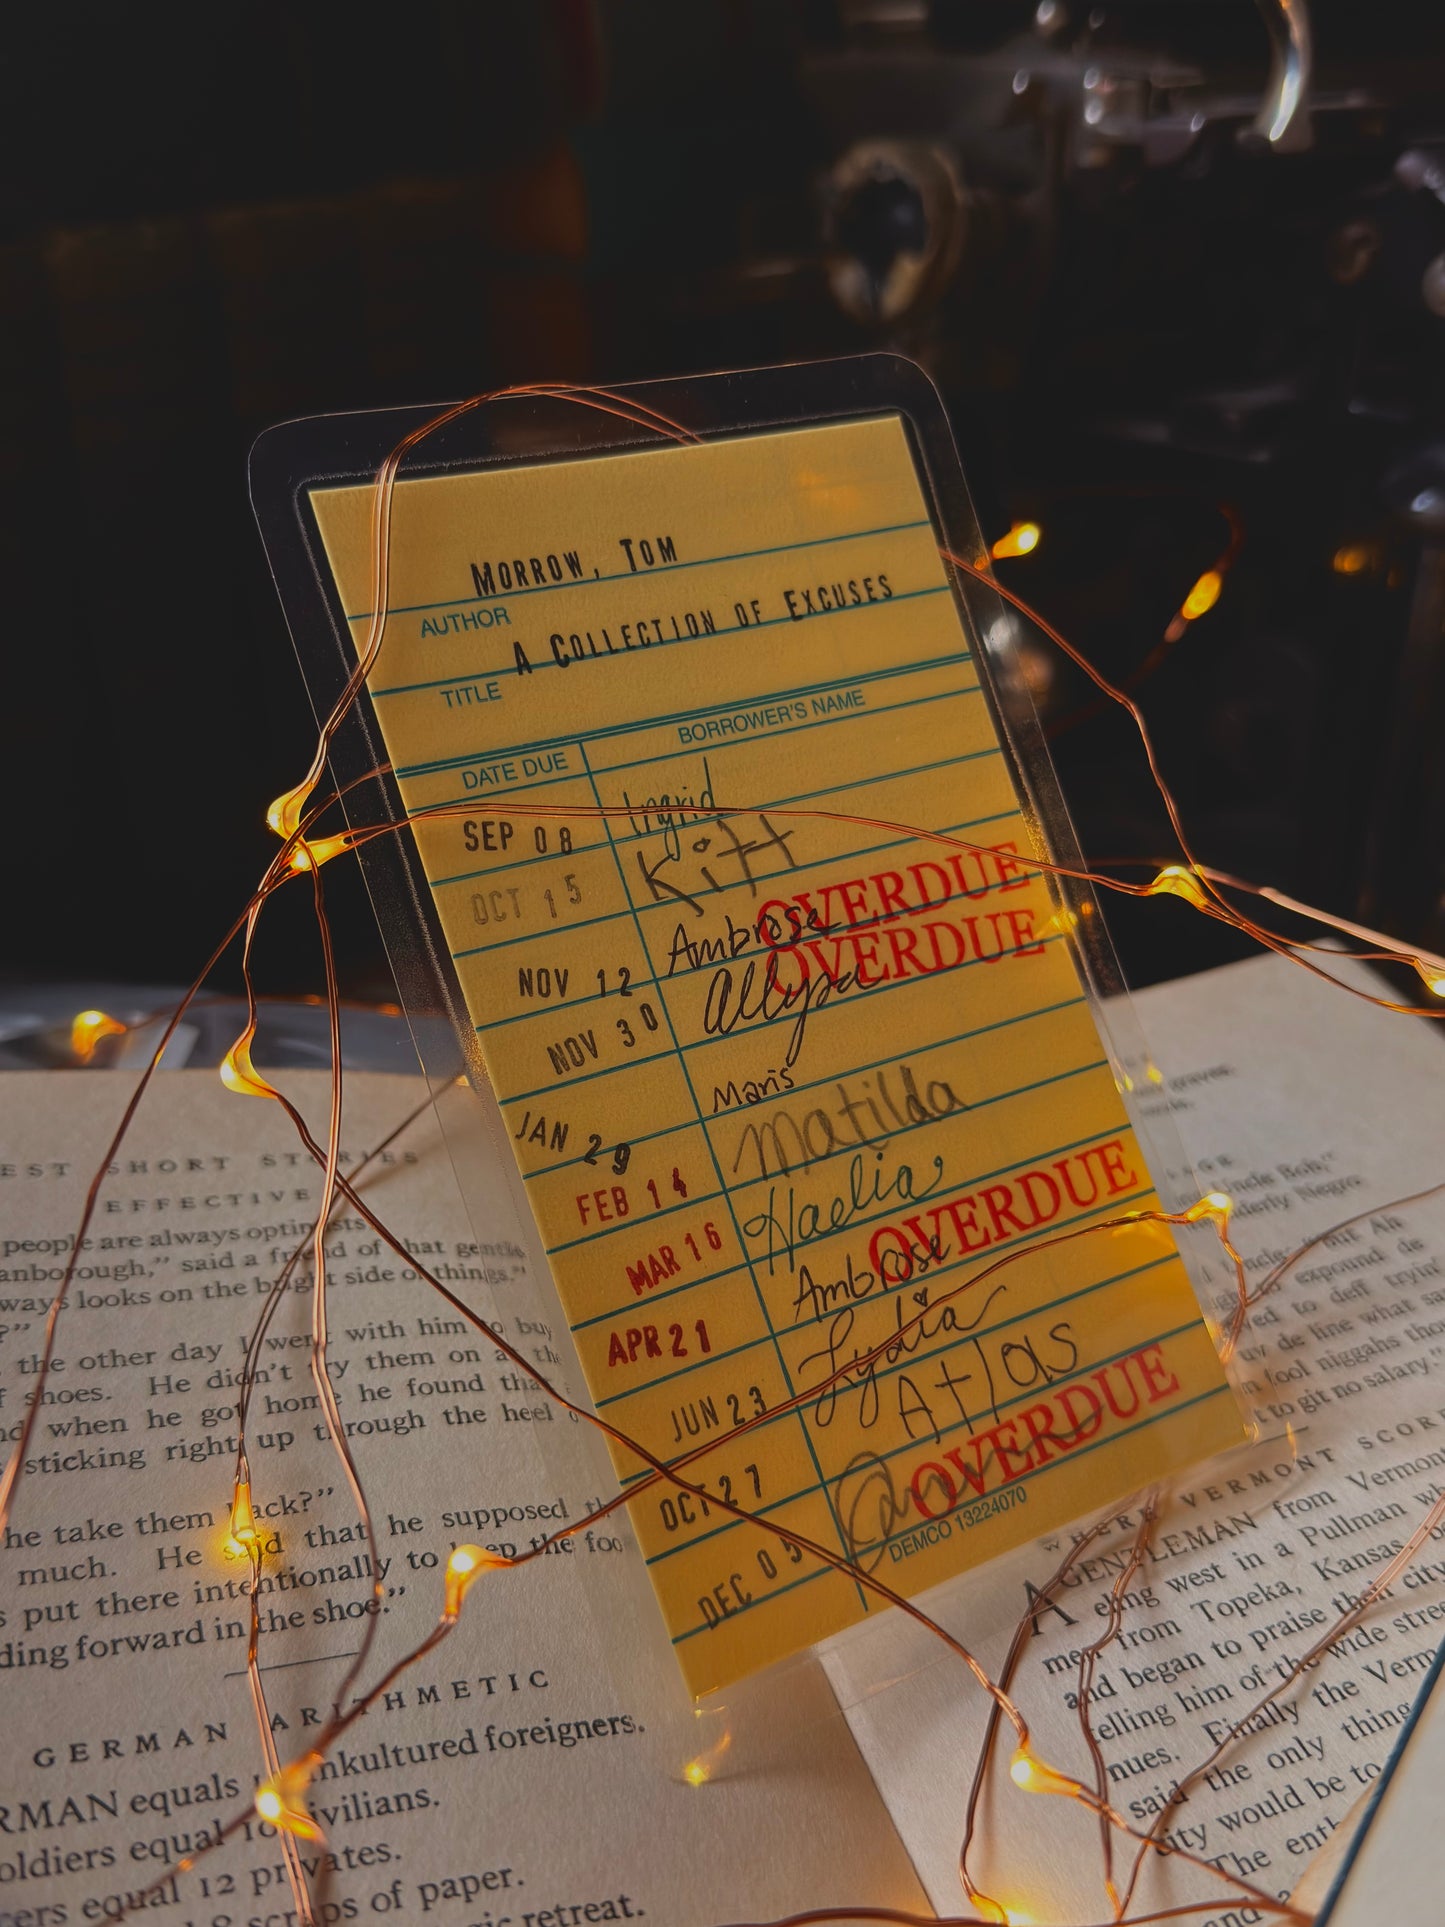 MORROW, TOM
AUTHOR
A COLLECTION OF EXCUSES
TITLE
DATE DUE BORROWER'S NAME
SEP 08 Ingrid
OCT 15 Kitt
NOV 12 Ambrose OVERDUE
NOV 30 Allysa OVERDUE
JAN 29 Maris
FEB 14 Matilda
MAR 16 Haelia
APR 21 Ambrose OVERDUE
JUN 23 Lydia
OCT 27 Atlas
DEC 05 OVERDUE
DEMCO 13224070
EST SHORT STORIES
EFFECTIVE
people are always optimists,
anborough,” said a friend of that gentle
ways looks on the bright side of things.”
?”
the other day I went with him to buy
f shoes. He didn't try them on at th
nd when he got home he found that
sticking right up through the heel o
he take them back?”
much. He said that he supposed th
s put there intentionally to keep the foo
ding forward in the shoe.”
GERMAN ARITHMETIC
RMAN equals 10 unkultured foreigners.
oldiers equal 10 civilians.
cers equal 12 privates.
scraps of paper.
retreat.
graves.
Uncle Bob,”
elderly Negro.
but Ah
to expound de
ed to deff tryin'
uv de line what sa
fool niggahs thou
t to git no salary.”
WHERE VERMONT SCORE
A GENTLEMAN from Vermont
eling west in a Pullman wh
men from Topeka, Kansas, b
and began to praise their city
telling him of the wide stree
nues. Finally the Verm
said the only thing
city would be to
The enth
and